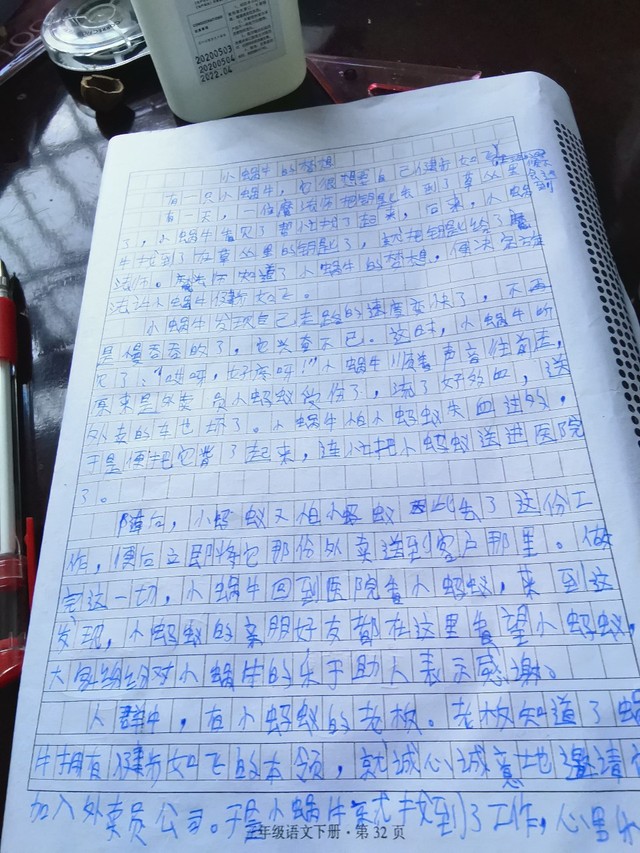 20200503
20200504
2022.04
小蜗牛的梦想
有一只小蜗牛，它很想要自己健步如飞
有一天，一位魔法师把钥匙丢到了草丛里
了，小蜗牛看见了帮他找了起来，后来，小蜗
牛找到了在草丛里的钥匙了，就把钥匙给了魔
法师。魔法师知道了小蜗牛的梦想，便决定施
法让小蜗牛健步如飞。
小蜗牛发现自己走路的速度变快了，不再
是慢吞吞的了，它兴奋不已。这时，小蜗牛听
见了："哎呀，好疼呀！"小蜗牛顺着声音往前走，
原来是外卖员小蚂蚁摔伤了，流了好多血，送
外卖的车也坏了。小蜗牛怕小蚂蚁失血过多，
于是便把它背了起来，连忙把小蚂蚁送进医院
了。
随后，小蜗牛又怕小蚂蚁因此丢了这份工
作，便后立即将它那份外卖送到客户那里。做
完这一切，小蜗牛回到医院看小蚂蚁，来到这
发现，小蚂蚁的亲朋好友都在这里看望小蚂蚁，
大家纷纷对小蜗牛的乐于助人表示感谢。
人群中，有小蚂蚁的老板。老板知道了蜗
牛拥有健步如飞的本领，就诚心诚意地邀请它
加入外卖员公司。于是小蜗牛正式找到了工作，心里乐
年级语文下册·第 32 页